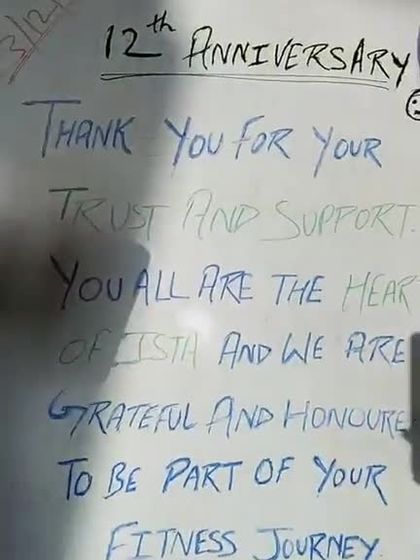 3/12/
12th ANNIVERSARY
THANK YOU FOR YOUR
TRUST AND SUPPORT.
YOU ALL ARE THE HEAR
OF ISTA AND WE ARE
GRATEFUL AND HONOURE
TO BE PART OF YOUR
FITNESS JOURNEY.